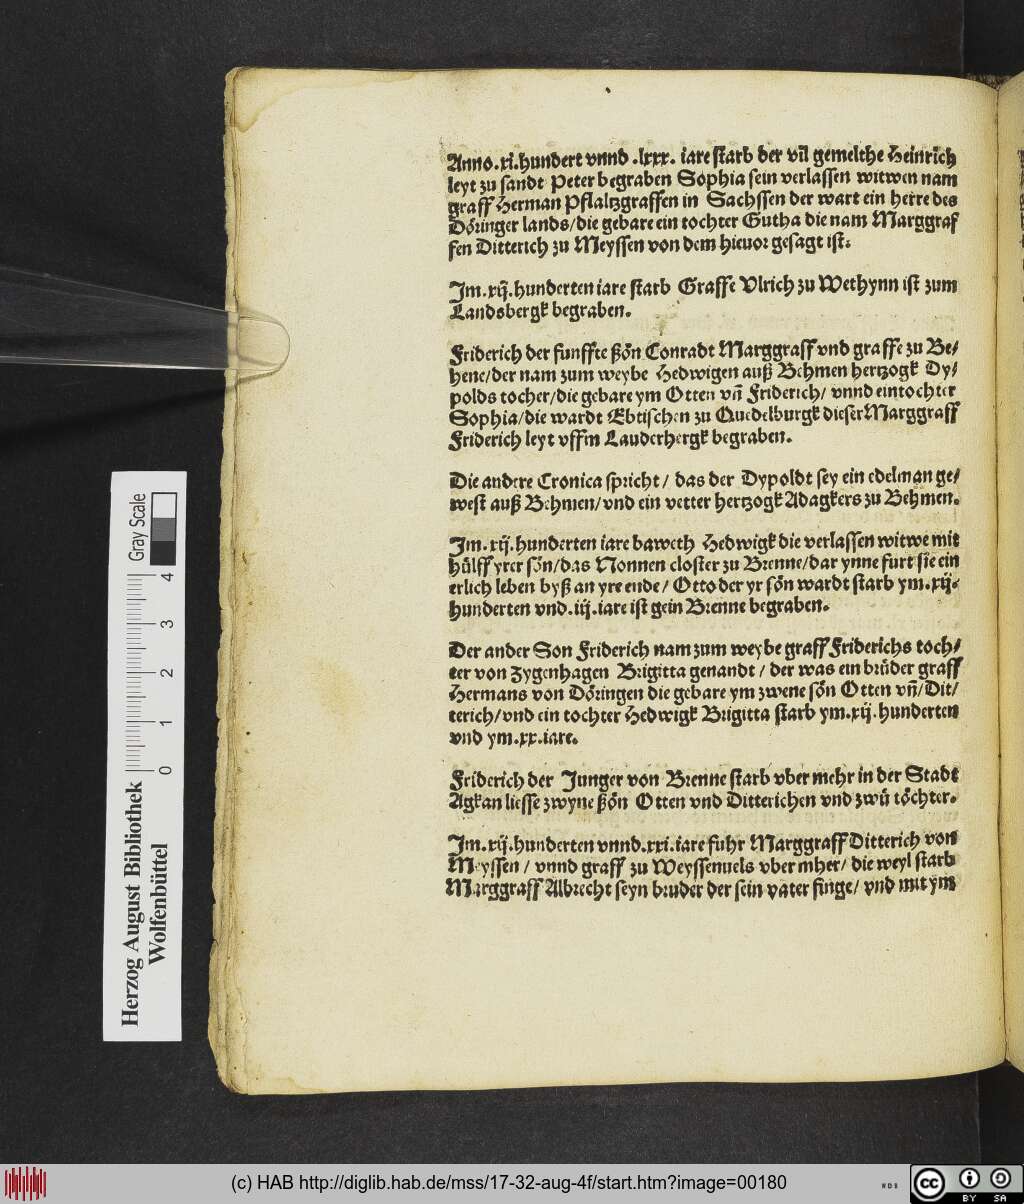 Anno.xi.hundert vnnd .lxxx. iare starb der vil gemelthe Heinrich
leyt zu sandt Peter begraben Sophia sein verlassen witwen nam
graff Herman Pflaltzgraffen in Sachssen der wart ein herre des
Döringer lands/die gebare ein tochter Gutha die nam Marggraf
fen Ditterich zu Meyssen von dem hieuor gesagt ist:
Im.xij.hunderten iare starb Graffe Vlrich zu Wethynn ist zum
Landsbergk begraben.
Friderich der funffte ßön Conradt Marggraff vnd graffe zu Be/
hene/der nam zum weybe Hedwigen auß Behmen hertzogk Dy/
polds tocher/die gebare ym Otten vn̄ Friderich/ vnnd ein tochter
Sophia/die wardt Ebtischen zu Quedelburgk dieser Marggraff
Friderich leyt vffm Lauderhergk begraben.
Die andere Cronica spricht / das der Dypoldt sey ein edelman ge/
west auß Behmen/vnd ein vetter hertzogk Adagkers zu Behmen.
Im.xij.hunderten iare baweth Hedwigk die verlassen witwe mit
hülff yrer sön/das Nonnen closter zu Brenne/dar ynne furt sie ein
erlich leben byß an yre ende/ Otto der yr sön wardt starb ym.xij.
hunderten vnd.iij.iare ist gein Brenne begraben.
Der ander Son Friderich nam zum weybe graff Friderichs toch/
ter von Zygenhagen Brigitta genandt / der was ein brüder graff
Hermans von Döringen die gebare ym zwene sön Otten vn̄/Dit/
terich/vnd ein tochter Hedwigk Brigitta starb ym.xij.hunderten
vnd ym.xx.iare.
Friderich der Junger von Brenne starb vber mehr in der Stadt
Agkan liesse zwyne ßön Otten vnd Ditterichen vnd zwü töchter.
Im.xij.hunderten vnnd.xxi.iare fuhr Marggraff Ditterich von
Meyssen / vnnd graff zu Weyssenuels vber mher/ die weyl starb
Marggraff Albrecht seyn bruder der sein vater finge/ vnd mit ym
Herzog August Bibliothek
Wolfenbüttel
0 1 2 3 4
Gray Scale
(c) HAB http://diglib.hab.de/mss/17-32-aug-4f/start.htm?image=00180
WDB
cc BY SA